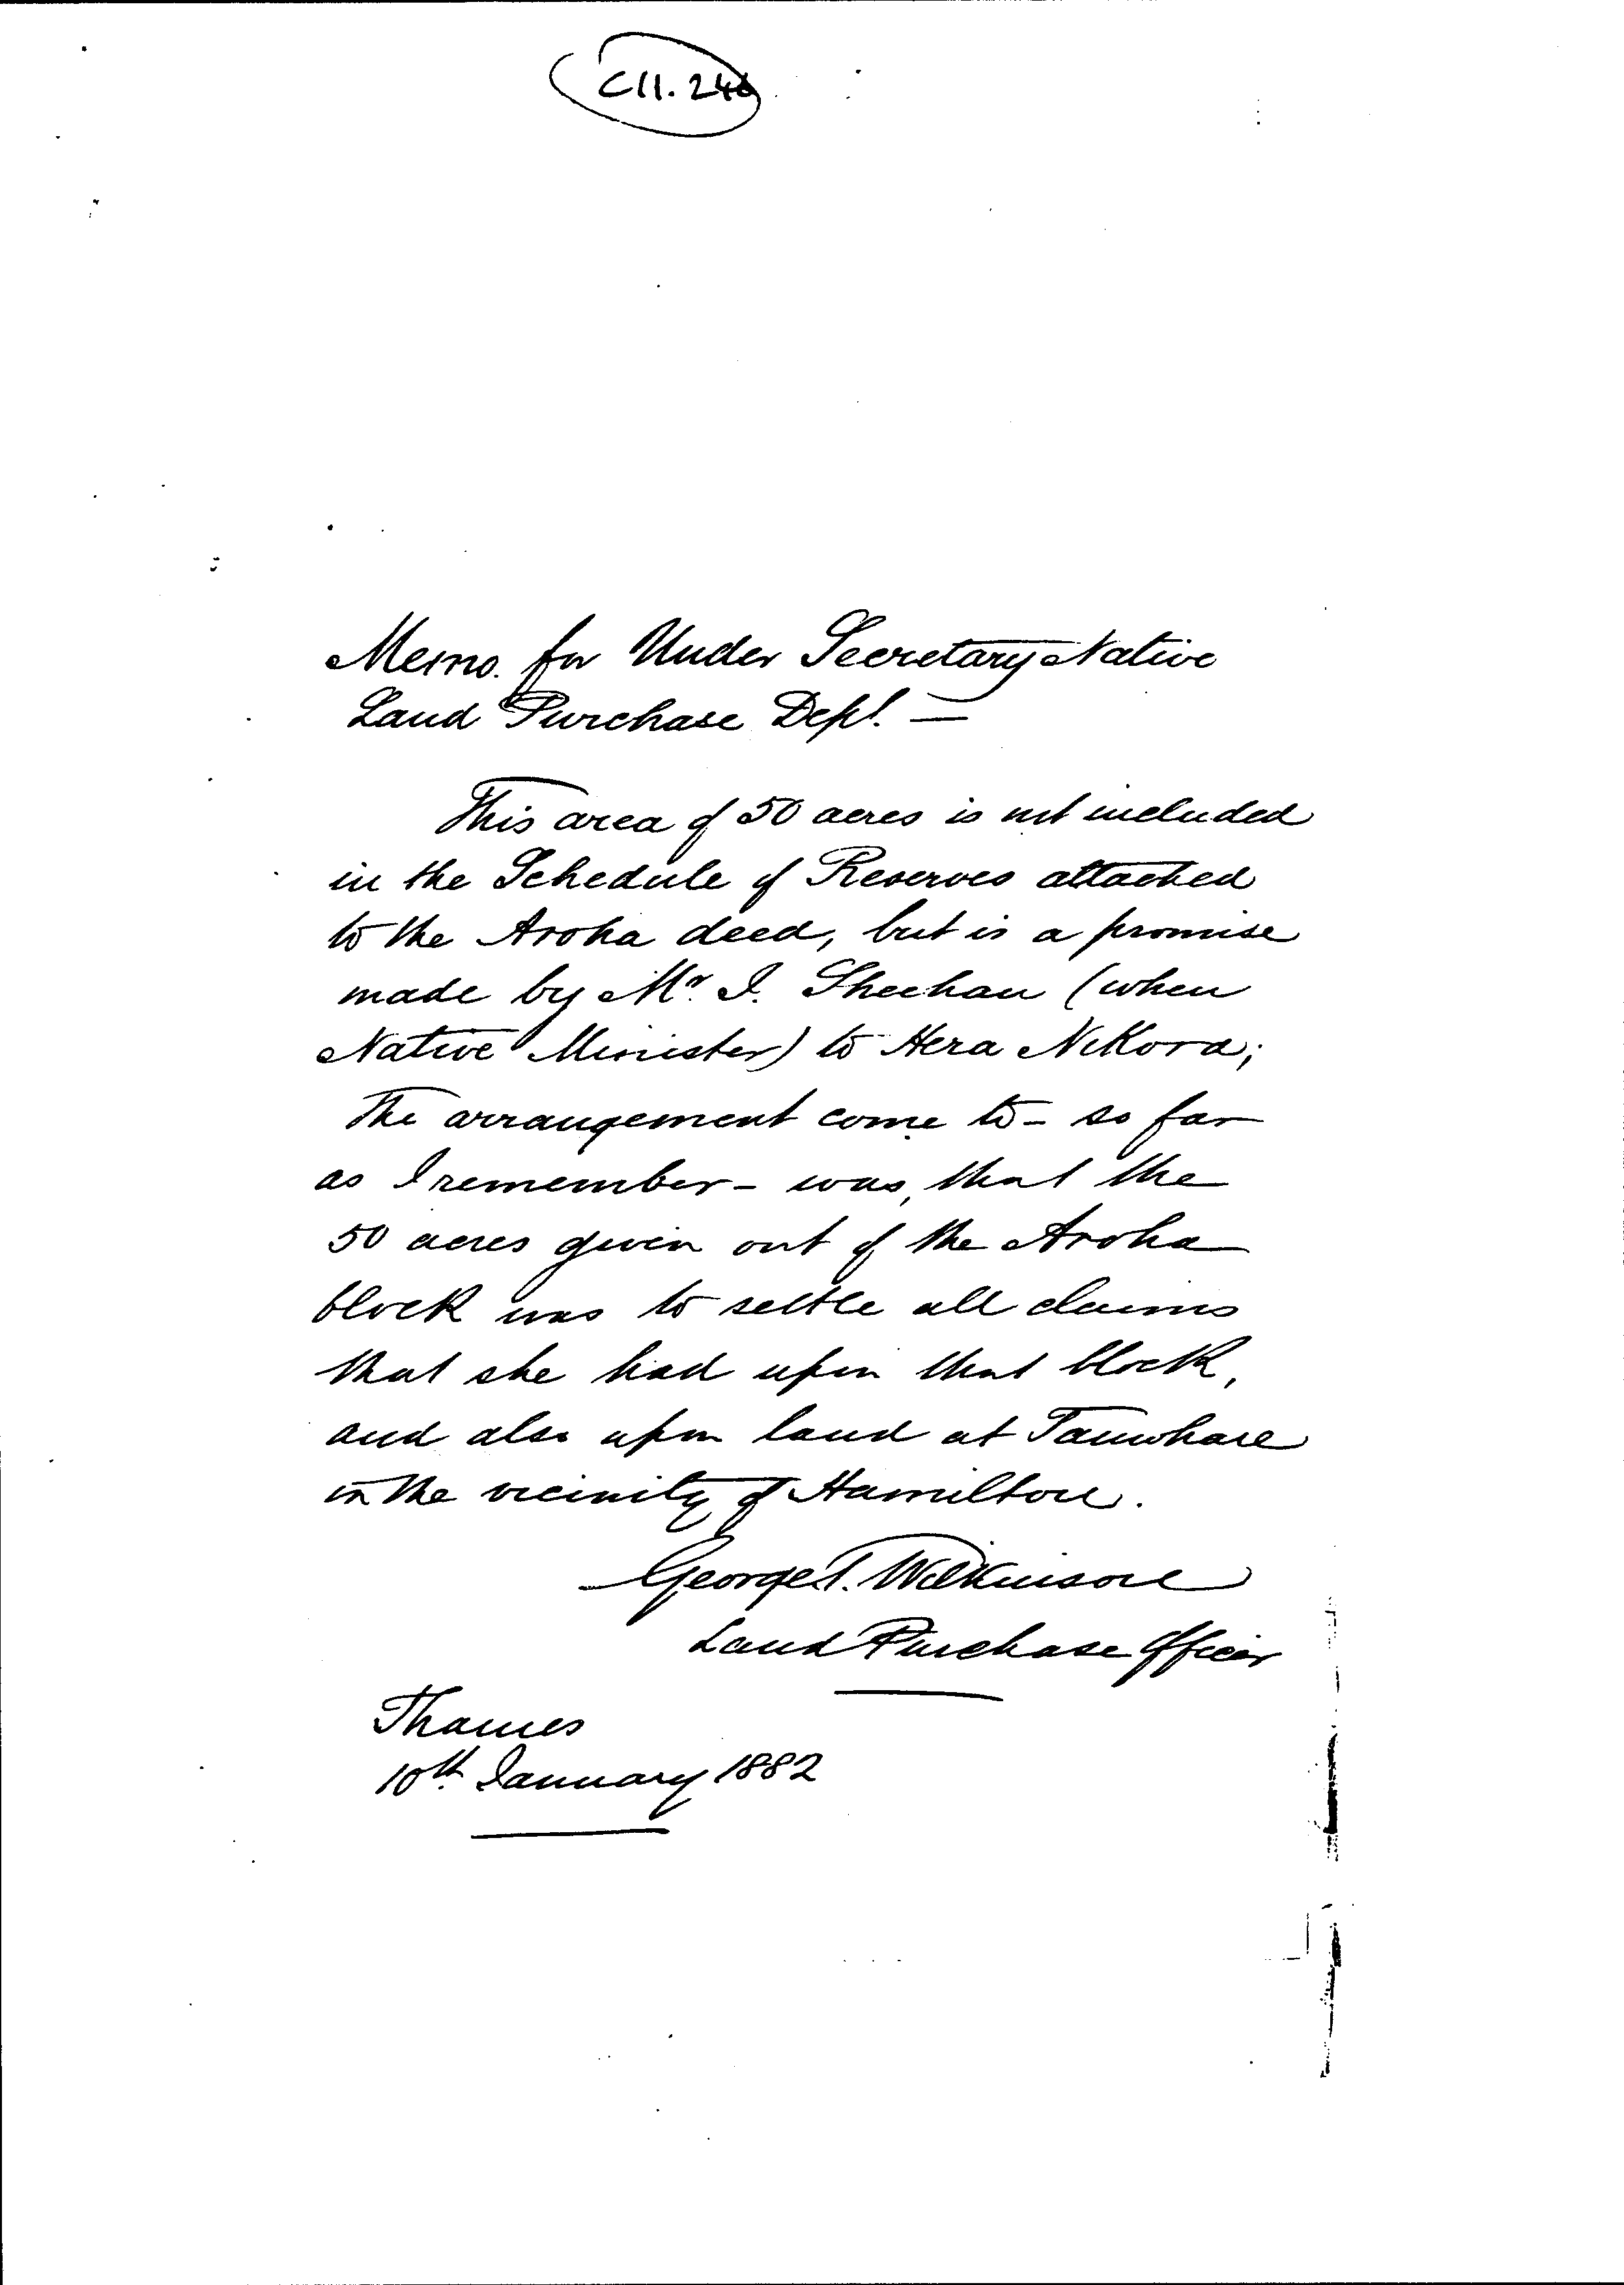 C11.246
Memo. for Under Secretary Native
Land Purchase Dept. —
This area of 50 acres is not included
in the Schedule of Reserves attached
to the Aroha deed, but is a promise
made by Mr. J. Sheehan (when
Native Minister) to Hera Nikora;
The arrangement come to - so far
as I remember - was, that the
50 acres given out of the Aroha
block was to settle all claims
that she had upon that block,
and also upon land at Tauwhare
in the vicinity of Hamilton.
George T. Wilkinson
Land Purchase Officer
Thames
10th January 1882